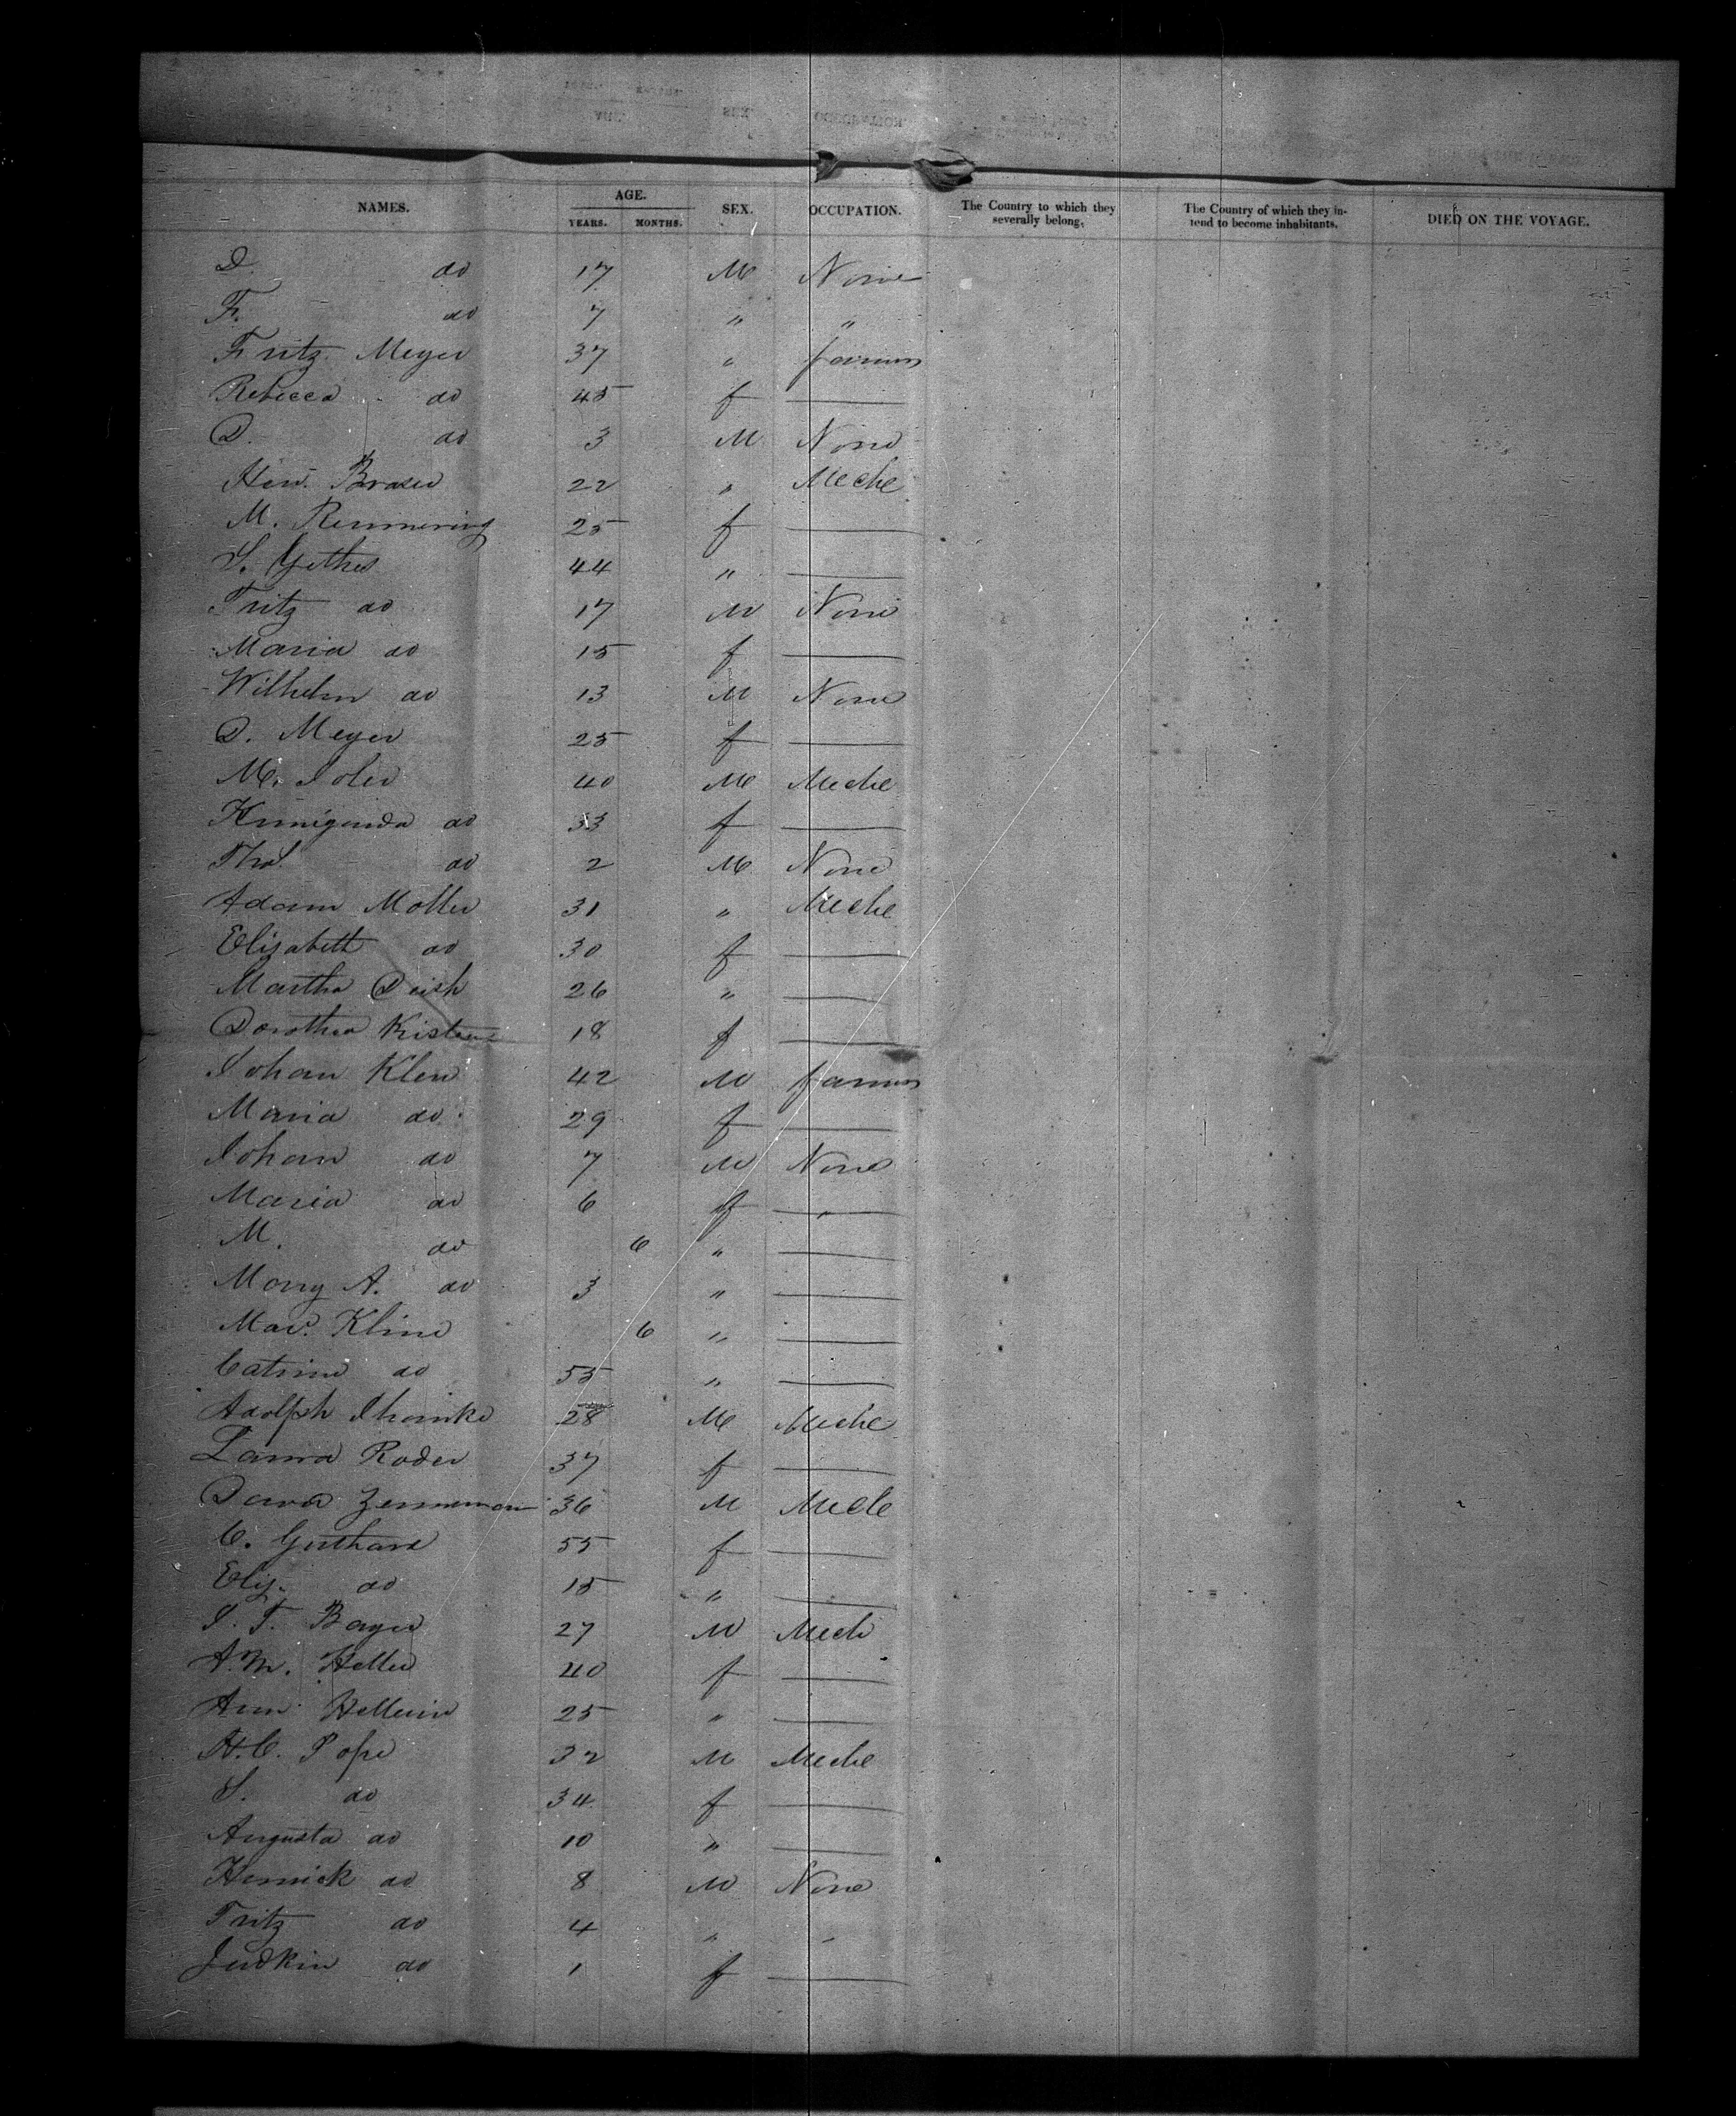 NAMES. AGE. YEARS. MONTHS. SEX. OCCUPATION. The Country to which they severally belong. The Country of which they in-tend to become inhabitants. DIED ON THE VOYAGE.
D. do 17 M None
F. do 7 " "
Fritz Meyer 37 " farmer
Rebecca do 45 f —
D. do 3 M None
Hen. Braser 22 " Mech
M. Remmering 25 f —
S. Gethes 44 " —
Fritz do 17 M None
Maria do 15 f —
Wilhelm do 13 M None
D. Meyer 25 f —
M. 40 M Mech
Kunigunda do 33 f —
do 2 M None
Adam Moller 31 " Mech
Elizabeth do 30 f —
Martha Deish 26 " —
Dorothea 18 f —
Johan Klen 42 M farmer
Maria do 29 f —
Johan do 7 M None
Maria do 6 f —
M. do 6 " —
Mary A. do 3 " —
Mar. Kline 6 " —
Catrine do 55 " —
Adolph 28 M Mech
Laura Roder 37 f —
David Zemmerman 36 M Mech
C. Guthard 55 f —
Eliz. do 15 " —
J. F. Bayer 27 M Mech
A. M. Heller 40 f —
Ann Hellerin 25 " —
H. C. Pope 32 M Mech
S. do 34 f —
Augusta do 10 " —
Henrick do 8 M None
Fritz do 4 " "
do 1 f —